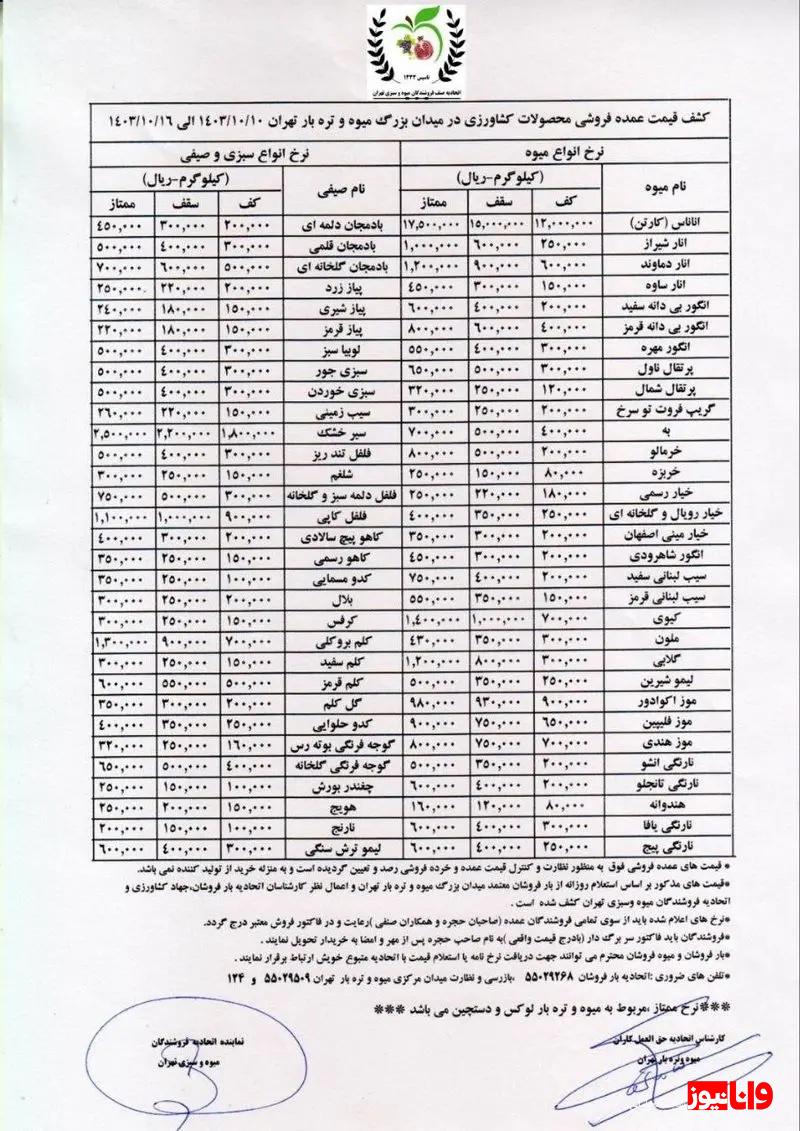 تاسیس ۱۳۳۳
اتحادیه صنف فروشندگان میوه و سبزی تهران
کشف قیمت عمده فروشی محصولات کشاورزی در میدان بزرگ میوه و تره بار تهران ۱۴۰۳/۱۰/۱۰ الی ۱۴۰۳/۱۰/۱۶
نرخ انواع میوه نرخ انواع سبزی و صیفی
نام میوه (کیلوگرم-ریال) نام صیفی (کیلوگرم-ریال)
کف سقف ممتاز کف سقف ممتاز
اناناس (کارتن) ۱۲,۰۰۰,۰۰۰ ۱۵,۰۰۰,۰۰۰ ۱۷,۵۰۰,۰۰۰ بادمجان دلمه ای ۲۰۰,۰۰۰ ۳۰۰,۰۰۰ ۴۵۰,۰۰۰
انار شیراز ۲۵۰,۰۰۰ ۶۰۰,۰۰۰ ۱,۰۰۰,۰۰۰ بادمجان قلمی ۳۰۰,۰۰۰ ۴۰۰,۰۰۰ ۵۰۰,۰۰۰
انار دماوند ۶۰۰,۰۰۰ ۹۰۰,۰۰۰ ۱,۲۰۰,۰۰۰ بادمجان گلخانه ای ۵۰۰,۰۰۰ ۶۰۰,۰۰۰ ۷۰۰,۰۰۰
انار ساوه ۱۵۰,۰۰۰ ۳۰۰,۰۰۰ ۴۵۰,۰۰۰ پیاز زرد ۲۰۰,۰۰۰ ۲۲۰,۰۰۰ ۲۵۰,۰۰۰
انگور بی دانه سفید ۲۰۰,۰۰۰ ۴۰۰,۰۰۰ ۶۰۰,۰۰۰ پیاز شیری ۱۵۰,۰۰۰ ۱۸۰,۰۰۰ ۲۴۰,۰۰۰
انگور بی دانه قرمز ۴۰۰,۰۰۰ ۶۰۰,۰۰۰ ۸۰۰,۰۰۰ پیاز قرمز ۱۵۰,۰۰۰ ۱۸۰,۰۰۰ ۲۲۰,۰۰۰
انگور مهره ۳۰۰,۰۰۰ ۴۰۰,۰۰۰ ۵۵۰,۰۰۰ لوبیا سبز ۳۰۰,۰۰۰ ۴۰۰,۰۰۰ ۵۰۰,۰۰۰
پرتقال ناول ۳۰۰,۰۰۰ ۵۰۰,۰۰۰ ۶۵۰,۰۰۰ سبزی جور ۳۰۰,۰۰۰ ۴۰۰,۰۰۰ ۵۰۰,۰۰۰
پرتقال شمال ۱۲۰,۰۰۰ ۲۵۰,۰۰۰ ۳۲۰,۰۰۰ سبزی خوردن ۳۰۰,۰۰۰ ۴۰۰,۰۰۰ ۵۰۰,۰۰۰
گریپ فروت تو سرخ ۲۰۰,۰۰۰ ۲۵۰,۰۰۰ ۳۰۰,۰۰۰ سیب زمینی ۱۵۰,۰۰۰ ۲۲۰,۰۰۰ ۲۶۰,۰۰۰
به ۴۰۰,۰۰۰ ۵۰۰,۰۰۰ ۷۰۰,۰۰۰ سیر خشک ۱,۸۰۰,۰۰۰ ۲,۲۰۰,۰۰۰ ۲,۵۰۰,۰۰۰
خرمالو ۲۰۰,۰۰۰ ۵۰۰,۰۰۰ ۸۰۰,۰۰۰ فلفل تند ریز ۳۰۰,۰۰۰ ۴۰۰,۰۰۰ ۵۰۰,۰۰۰
خربزه ۸۰,۰۰۰ ۱۵۰,۰۰۰ ۲۵۰,۰۰۰ شلغم ۱۵۰,۰۰۰ ۲۵۰,۰۰۰ ۳۰۰,۰۰۰
خیار رسمی ۱۸۰,۰۰۰ ۲۲۰,۰۰۰ ۲۵۰,۰۰۰ فلفل دلمه سبز و گلخانه ۳۰۰,۰۰۰ ۵۰۰,۰۰۰ ۷۵۰,۰۰۰
خیار رویال و گلخانه ای ۲۵۰,۰۰۰ ۳۵۰,۰۰۰ ۴۰۰,۰۰۰ فلفل کاپی ۹۰۰,۰۰۰ ۱,۰۰۰,۰۰۰ ۱,۱۰۰,۰۰۰
خیار مینی اصفهان ۲۰۰,۰۰۰ ۳۰۰,۰۰۰ ۳۵۰,۰۰۰ کاهو پیچ سالادی ۲۰۰,۰۰۰ ۳۰۰,۰۰۰ ۴۰۰,۰۰۰
انگور شاهرودی ۲۰۰,۰۰۰ ۳۰۰,۰۰۰ ۴۵۰,۰۰۰ کاهو رسمی ۱۵۰,۰۰۰ ۲۵۰,۰۰۰ ۳۵۰,۰۰۰
سیب لبنانی سفید ۲۰۰,۰۰۰ ۴۰۰,۰۰۰ ۷۵۰,۰۰۰ کدو مسمایی ۱۰۰,۰۰۰ ۲۵۰,۰۰۰ ۳۵۰,۰۰۰
سیب لبنانی قرمز ۱۵۰,۰۰۰ ۳۵۰,۰۰۰ ۵۵۰,۰۰۰ بلال ۲۰۰,۰۰۰ ۲۵۰,۰۰۰ ۳۰۰,۰۰۰
کیوی ۷۰۰,۰۰۰ ۱,۰۰۰,۰۰۰ ۱,۴۰۰,۰۰۰ کرفس ۱۵۰,۰۰۰ ۲۵۰,۰۰۰ ۳۰۰,۰۰۰
ملون ۳۰۰,۰۰۰ ۳۵۰,۰۰۰ ۴۳۰,۰۰۰ کلم بروکلی ۷۰۰,۰۰۰ ۹۰۰,۰۰۰ ۱,۳۰۰,۰۰۰
گلابی ۳۰۰,۰۰۰ ۸۰۰,۰۰۰ ۱,۲۰۰,۰۰۰ کلم سفید ۱۵۰,۰۰۰ ۲۵۰,۰۰۰ ۳۰۰,۰۰۰
لیمو شیرین ۲۵۰,۰۰۰ ۳۵۰,۰۰۰ ۵۰۰,۰۰۰ کلم قرمز ۵۰۰,۰۰۰ ۵۵۰,۰۰۰ ۶۰۰,۰۰۰
موز اکوادور ۹۰۰,۰۰۰ ۹۳۰,۰۰۰ ۹۸۰,۰۰۰ گل کلم ۲۰۰,۰۰۰ ۳۰۰,۰۰۰ ۳۵۰,۰۰۰
موز فلیپین ۶۵۰,۰۰۰ ۷۵۰,۰۰۰ ۹۰۰,۰۰۰ کدو حلوایی ۲۵۰,۰۰۰ ۳۵۰,۰۰۰ ۴۰۰,۰۰۰
موز هندی ۷۰۰,۰۰۰ ۷۵۰,۰۰۰ ۸۰۰,۰۰۰ گوجه فرنگی بوته رس ۱۶۰,۰۰۰ ۲۵۰,۰۰۰ ۳۲۰,۰۰۰
نارنگی انشو ۲۰۰,۰۰۰ ۳۵۰,۰۰۰ ۵۰۰,۰۰۰ گوجه فرنگی گلخانه ۴۰۰,۰۰۰ ۵۰۰,۰۰۰ ۶۵۰,۰۰۰
نارنگی تانجلو ۲۰۰,۰۰۰ ۴۰۰,۰۰۰ ۶۰۰,۰۰۰ چغندر بورش ۱۰۰,۰۰۰ ۱۵۰,۰۰۰ ۲۵۰,۰۰۰
هندوانه ۸۰,۰۰۰ ۱۲۰,۰۰۰ ۱۶۰,۰۰۰ هویج ۱۵۰,۰۰۰ ۲۰۰,۰۰۰ ۲۵۰,۰۰۰
نارنگی یافا ۳۰۰,۰۰۰ ۴۰۰,۰۰۰ ۶۰۰,۰۰۰ نارنج ۱۰۰,۰۰۰ ۱۵۰,۰۰۰ ۲۰۰,۰۰۰
نارنگی پیج ۲۵۰,۰۰۰ ۴۰۰,۰۰۰ ۶۰۰,۰۰۰ لیمو ترش سنگی ۳۰۰,۰۰۰ ۴۰۰,۰۰۰ ۶۰۰,۰۰۰
* قیمت های عمده فروشی فوق به منظور نظارت و کنترل قیمت عمده و خرده فروشی رصد و تعیین گردیده است و به منزله خرید از تولید کننده نمی باشد.
*قیمت های مذکور بر اساس استعلام روزانه از بار فروشان معتمد میدان بزرگ میوه و تره بار تهران و اعمال نظر کارشناسان اتحادیه بار فروشان،جهاد کشاورزی و
اتحادیه فروشندگان میوه وسبزی تهران کشف شده است .
*نرخ های اعلام شده باید از سوی تمامی فروشندگان عمده (صاحبان حجره و همکاران صنفی )رعایت و در فاکتور فروش معتبر درج گردد.
*فروشندگان باید فاکتور سر برگ دار (بادرج قیمت واقعی )به نام صاحب حجره پس از مهر و امضا به خریدار تحویل نمایند .
*بار فروشان و میوه فروشان محترم می توانند جهت دریافت نرخ نامه یا استعلام قیمت با اتحادیه متبوع خویش ارتباط برقرار نمایند .
*تلفن های ضروری :اتحادیه بار فروشان ۵۵۰۲۹۲۶۸ ،بازرسی و نظارت میدان مرکزی میوه و تره بار تهران ۵۵۰۲۹۵۰۹ و ۱۲۴
***نرخ ممتاز ،مربوط به میوه و تره بار لوکس و دستچین می باشد ***
کارشناس اتحادیه حق العمل کاران
میوه وتره بار تهران
نماینده اتحادیه فروشندگان
میوه و سبزی تهران
وانانیوز